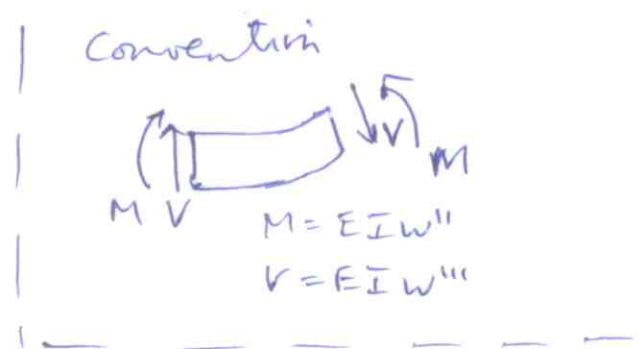 Convention
V M
M V
M = EIw''
V = EIw'''